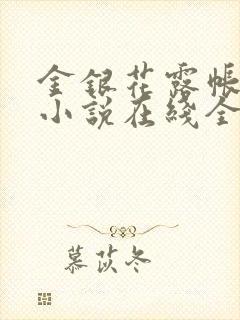 金银花露帐
小说在线全
慕苡冬